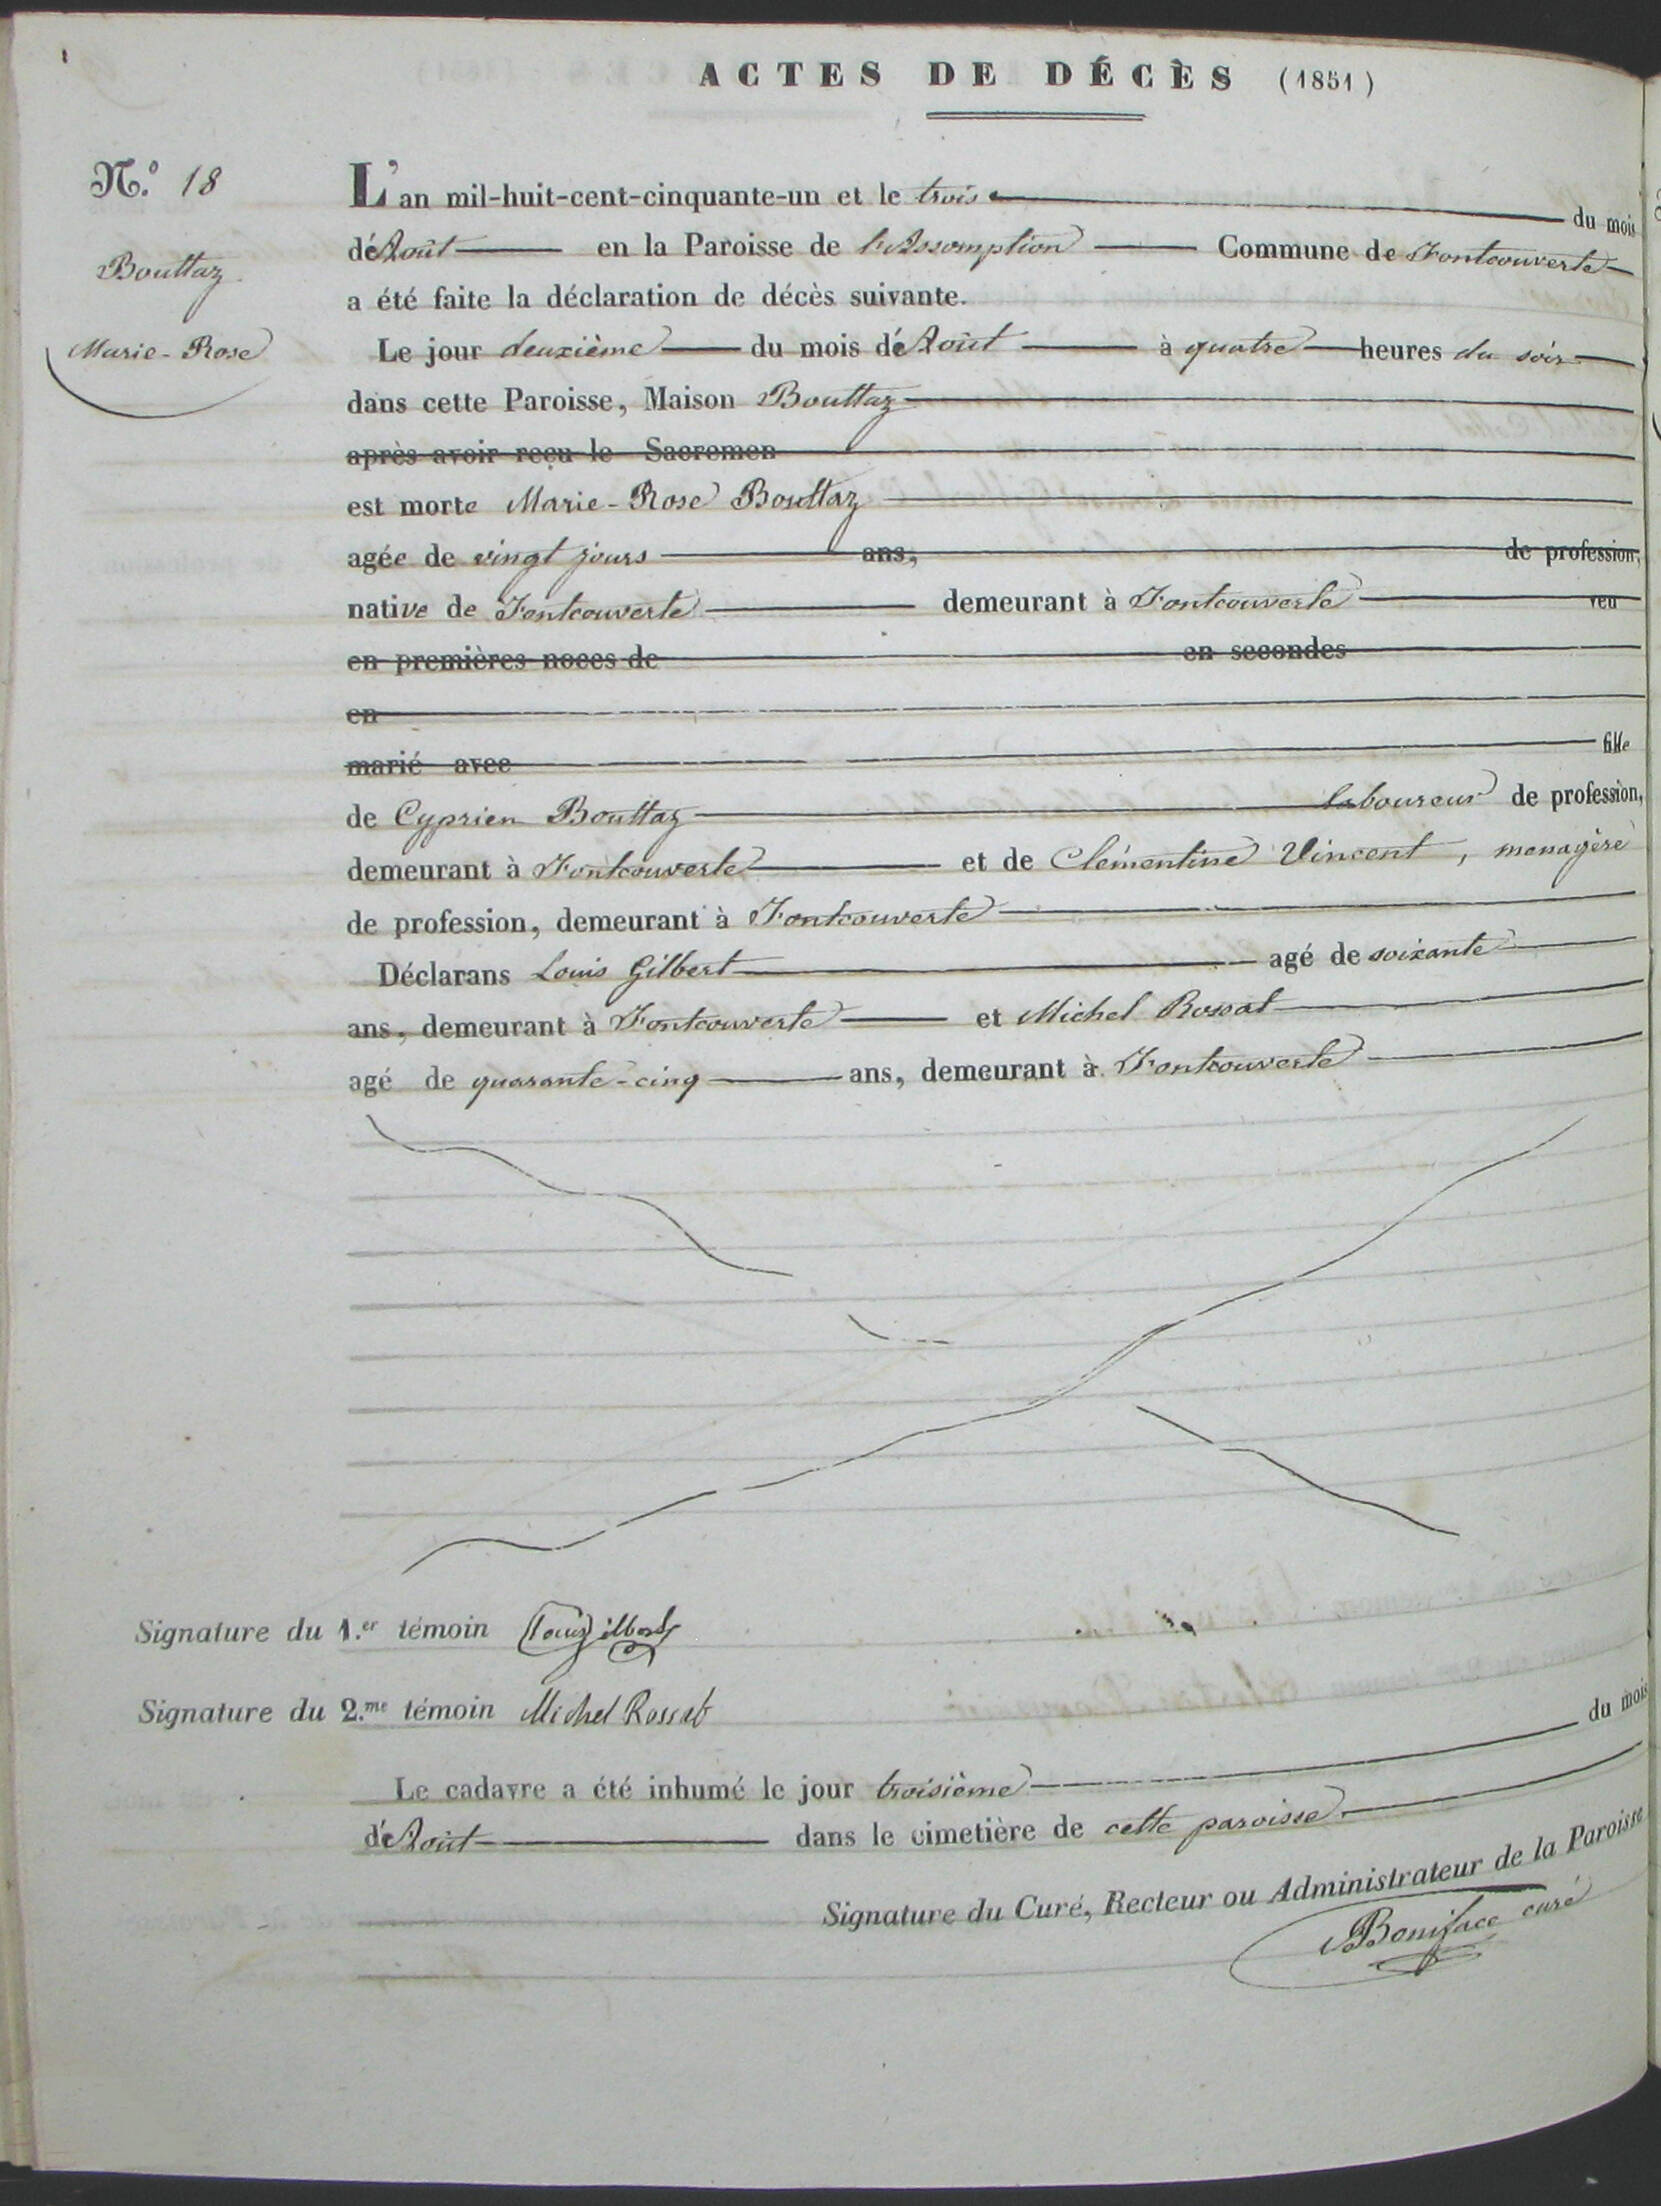 ACTES DE DÉCÈS (1851)
N.º 18
Bouttaz
Marie-Rose
L'an mil-huit-cent-cinquante-un et le trois du mois
d'Août en la Paroisse de l'Assomption Commune de Fontcouverte
a été faite la déclaration de décès suivante.
Le jour deuxième du mois d'Août à quatre heures du soir
dans cette Paroisse, Maison Bouttaz
après avoir reçu le Sacremen
est morte Marie-Rose Bouttaz
agée de vingt jours ans, de profession,
native de Fontcouverte demeurant à Fontcouverte veu
en premières noces de en secondes
en
marié avec fille
de Cyprien Bouttaz laboureur de profession,
demeurant à Fontcouverte et de Clémentine Vincent, menagère
de profession, demeurant à Fontcouverte
Déclarans Louis Gilbert agé de soixante
ans, demeurant à Fontcouverte et Michel Rossat
agé de quarante-cinq ans, demeurant à Fontcouverte
Signature du 1.er témoin Louis Gilbert
Signature du 2.me témoin Michel Rossat
Le cadavre a été inhumé le jour troisième du mois
d'Août dans le cimetière de cette paroisse.
Signature du Curé, Recteur ou Administrateur de la Paroisse
Boniface curé